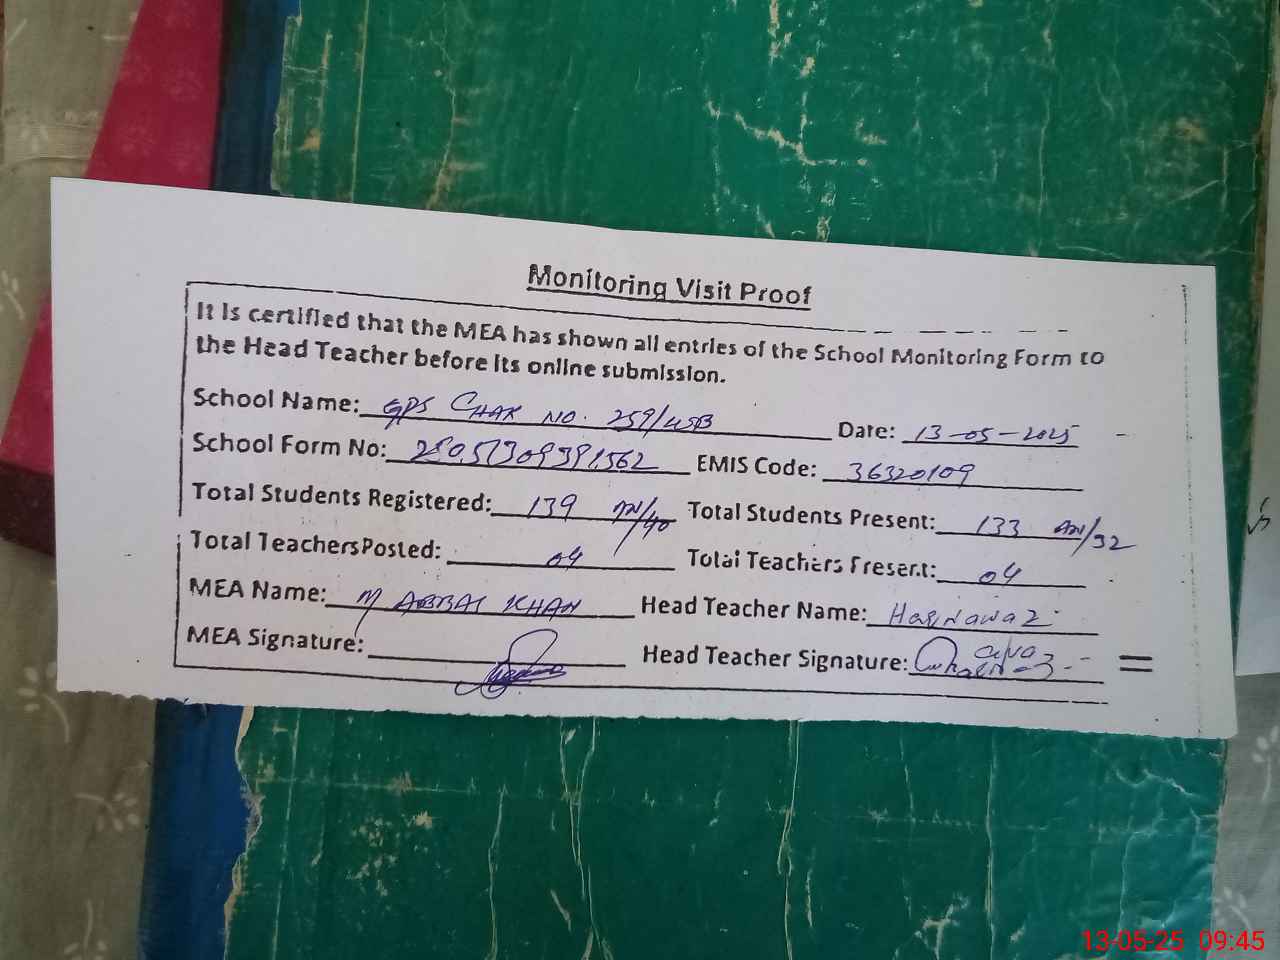 Monitoring Visit Proof
It is certified that the MEA has shown all entries of the School Monitoring Form to
the Head Teacher before its online submission.
School Name: GPS CHAK NO. 259/WB Date: 13-05-2025
School Form No: EMIS Code: 36320109
Total Students Registered: 139 Total Students Present: 133
Total TeachersPosted: 04 Total Teachers Present: 04
MEA Name: M ABBAS KHAN Head Teacher Name: Haq Nawaz
MEA Signature: Head Teacher Signature:
13-05-25 09:45